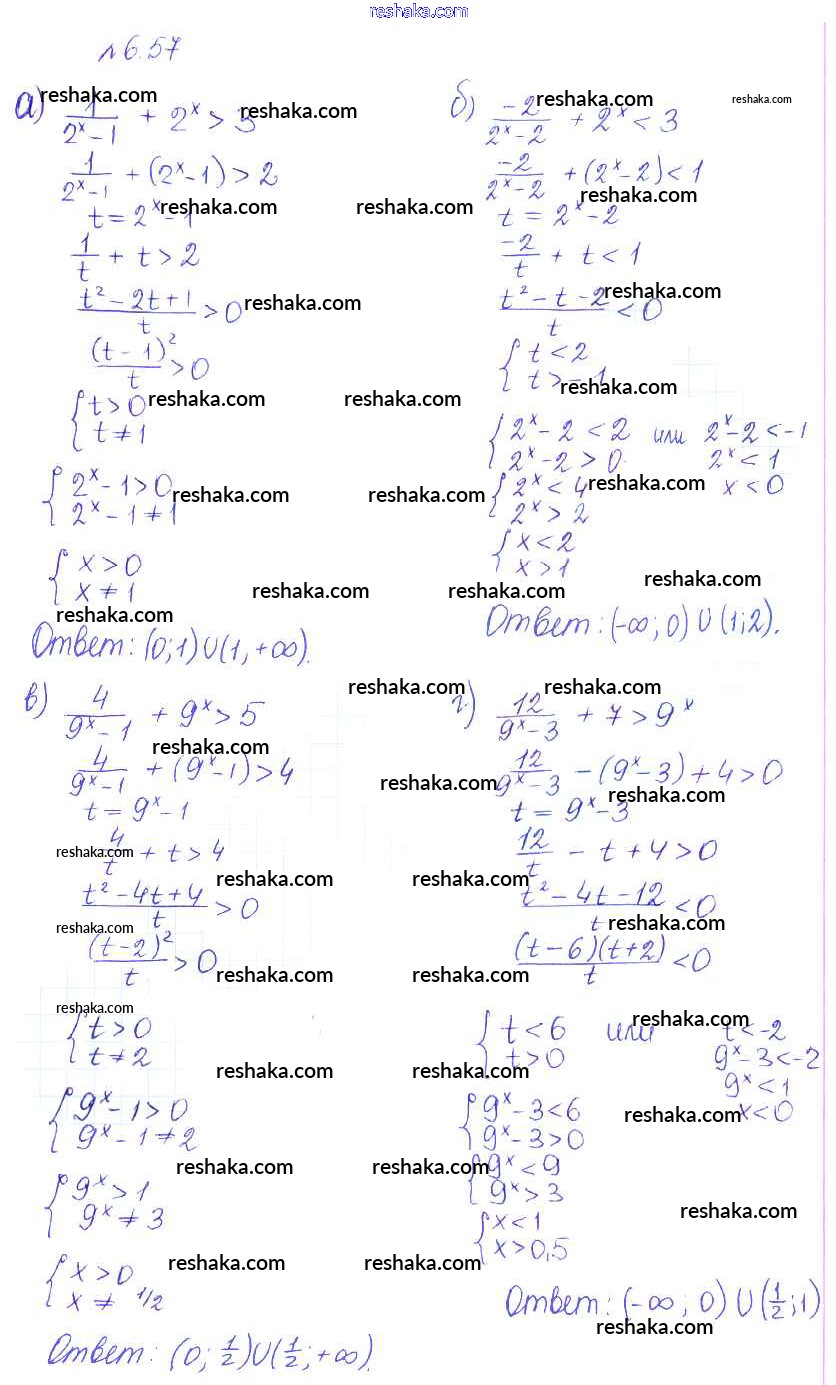 reshaka.com
№6.57
а) 1/(2^x-1) + 2^x > 3
1/(2^x-1) + (2^x-1) > 2
t = 2^x-1
1/t + t > 2
(t²-2t+1)/t > 0
(t-1)²/t > 0
{ t > 0
t ≠ 1
{ 2^x-1 > 0
2^x-1 ≠ 1
{ x > 0
x ≠ 1
Ответ: (0;1)∪(1,+∞).
б) -2/(2^x-2) + 2^x < 3
-2/(2^x-2) + (2^x-2) < 1
t = 2^x-2
-2/t + t < 1
(t²-t-2)/t < 0
{ t < 2
t > -1
{ 2^x-2 < 2 или 2^x-2 < -1
2^x-2 > 0 2^x < 1
{ 2^x < 4 x < 0
2^x > 2
{ x < 2
x > 1
Ответ: (-∞;0)∪(1;2).
в) 4/(9^x-1) + 9^x > 5
4/(9^x-1) + (9^x-1) > 4
t = 9^x-1
4/t + t > 4
(t²-4t+4)/t > 0
(t-2)²/t > 0
{ t > 0
t ≠ 2
{ 9^x-1 > 0
9^x-1 ≠ 2
{ 9^x > 1
9^x ≠ 3
{ x > 0
x ≠ 1/2
Ответ: (0; 1/2)∪(1/2; +∞).
г) 12/(9^x-3) + 7 > 9^x
12/(9^x-3) - (9^x-3) + 4 > 0
t = 9^x-3
12/t - t + 4 > 0
(t²-4t-12)/t < 0
(t-6)(t+2)/t < 0
{ t < 6 или t < -2
t > 0 9^x-3 < -2
9^x < 1
{ 9^x-3 < 6 x < 0
9^x-3 > 0
{ 9^x < 9
9^x > 3
{ x < 1
x > 0,5
Ответ: (-∞; 0)∪(1/2; 1)